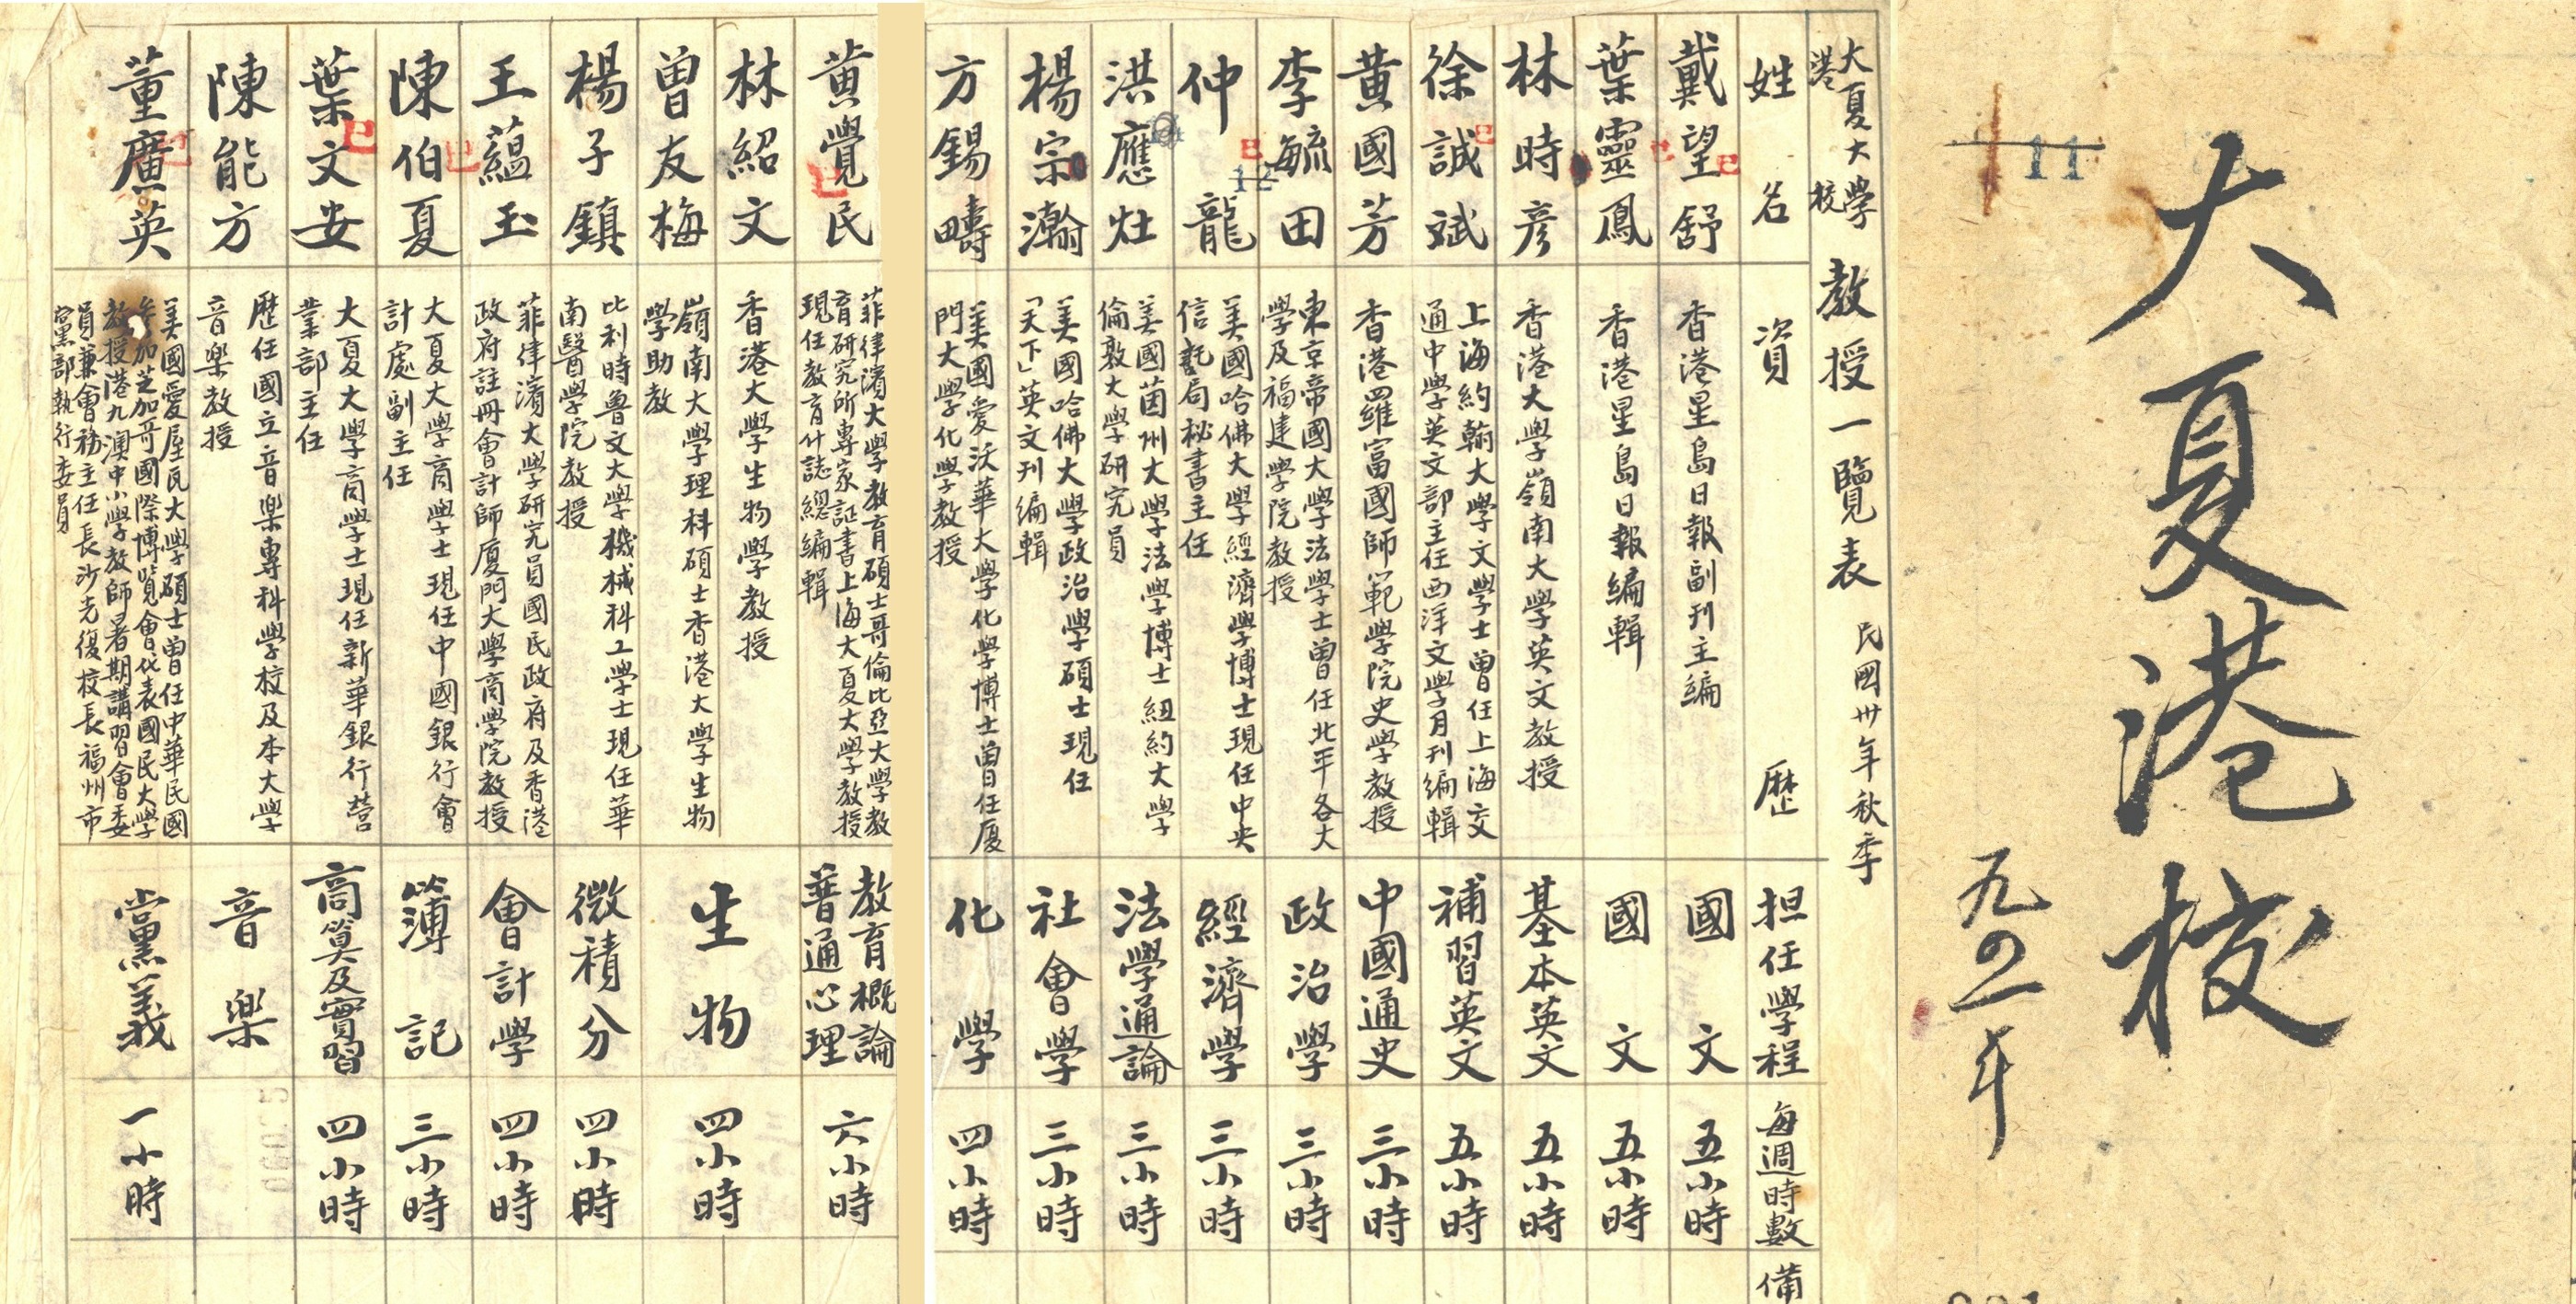 大夏港校
一九四一年
11
大夏大學港校教授一覽表 民國卅年秋季
姓名 資歷 担任學程 每週時數 備
戴望舒 香港星島日報副刊主編 國文 五小時
葉靈鳳 香港星島日報編輯 國文 五小時
林時彥 香港大學嶺南大學英文教授 基本英文 五小時
徐誠斌 上海約翰大學文學士曾任上海交通中學英文部主任西洋文學月刊編輯 補習英文 五小時
黄國芳 香港羅富國師範學院史學教授 中國通史 三小時
李毓田 東京帝國大學法學士曾任北平各大學及福建學院教授 政治學 三小時
12
仲龍 美國哈佛大學經濟學博士現任中央信託局秘書主任 經濟學 三小時
洪應灶 美國茵州大學法學博士紐約大學倫敦大學研究員 法學通論 三小時
楊宗瀚 美國哈佛大學政治學碩士現任「天下」英文刊編輯 社會學 三小時
方錫疇 美國愛沃華大學化學博士曾任厦門大學化學教授 化學 四小時
黄覺民 菲律濱大學教育碩士哥倫比亞大學教育研究所專家証書上海大夏大學教授現任教育什誌總編輯 教育概論 普通心理 六小時
林紹文 香港大學生物學教授 生物 四小時
曾友梅 嶺南大學理科碩士香港大學生物學助教
楊子鎮 比利時魯文大學機械科工學士現任華南醫學院教授 微積分 四小時
王蘊玉 菲律濱大學研究員國民政府及香港政府註冊會計師厦門大學商學院教授 會計學 四小時
陳伯夏 大夏大學商學士現任中國銀行會計處副主任 簿記 三小時
葉文安 大夏大學商學士現任新華銀行營業部主任 商算及實習 四小時
陳能方 歷任國立音樂專科學校及本大學音樂教授 音樂
董廣英 美國愛屋瓦大學碩士曾任中華民國參加芝加哥國際博覧會代表國民大學教授港九澳中小學教師暑期講習會委員兼會務主任長沙光復校長福州市黨部執行委員 黨義 一小時